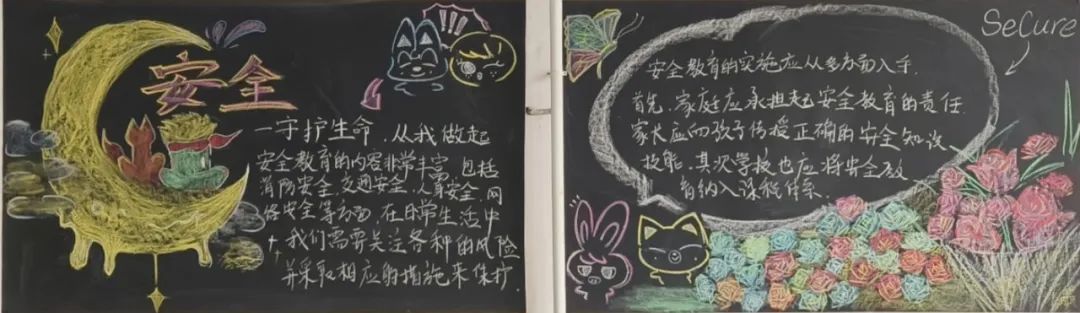 安全
一守护生命，从我做起
安全教育的内容非常丰富，包括
消防安全，交通安全，人身安全，网
络安全等方面，在日常生活中
我们需要关注各种的风险
并采取相应的措施来保护
SeCure
安全教育的实施应从多方面入手。
首先，家庭应承担起安全教育的责任
家长应向孩子传授正确的安全知识
技能，其次学校也应将安全教
育纳入课程体系